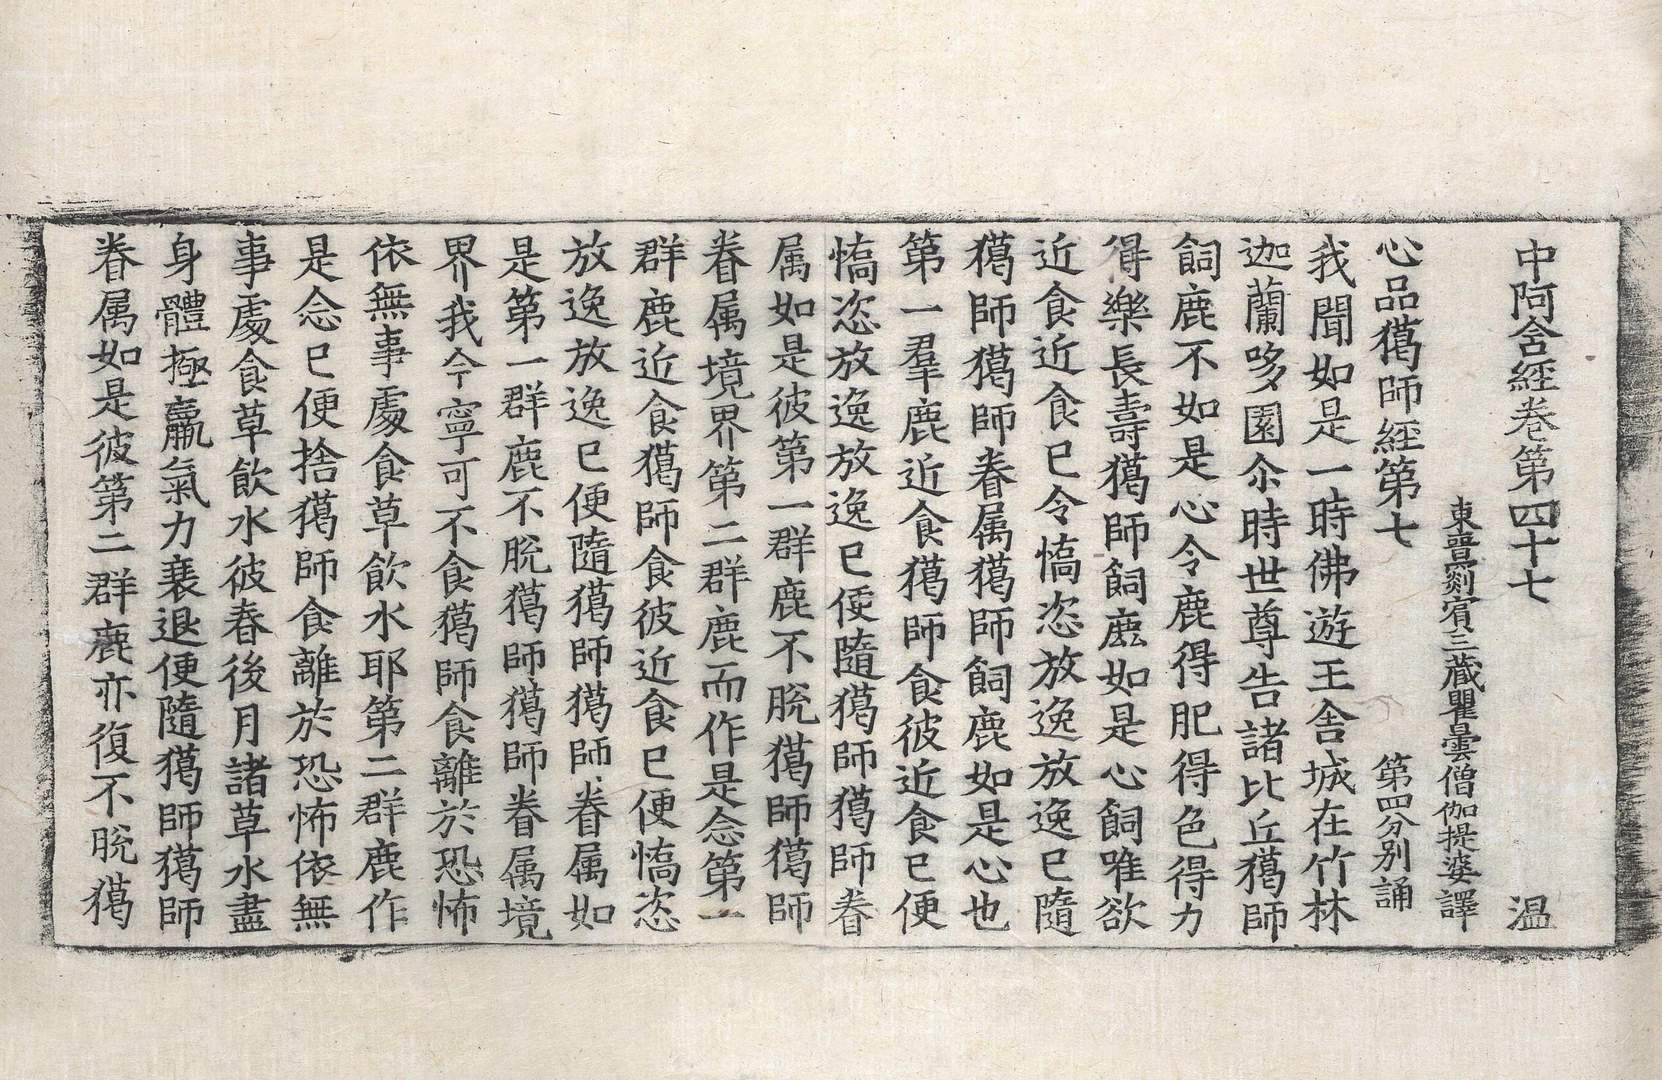 中阿含經卷第四十七 温
東晉罽賓三藏瞿曇僧伽提婆譯
心品獦師經第七 第四分別誦
我聞如是一時佛遊王舍城在竹林
迦蘭哆園尒時世尊告諸比丘獦師
飼鹿不如是心令鹿得肥得色得力
得樂長壽獦師飼鹿如是心飼唯欲
近食近食已令憍恣放逸放逸已隨
獦師獦師眷属獦師飼鹿如是心也
第一羣鹿近食獦師食彼近食已便
憍恣放逸放逸已便隨獦師獦師眷
属如是彼第一群鹿不脫獦師獦師
眷属境界第二群鹿而作是念第一
群鹿近食獦師食彼近食已便憍恣
放逸放逸已便隨獦師獦師眷属如
是第一群鹿不脫獦師獦師眷属境
界我今寧可不食獦師食離於恐怖
依無事處食草飲水耶第二群鹿作
是念已便捨獦師食離於恐怖依無
事處食草飲水彼春後月諸草水盡
身體極羸氣力衰退便隨獦師獦師
眷属如是彼第二群鹿亦復不脫獦